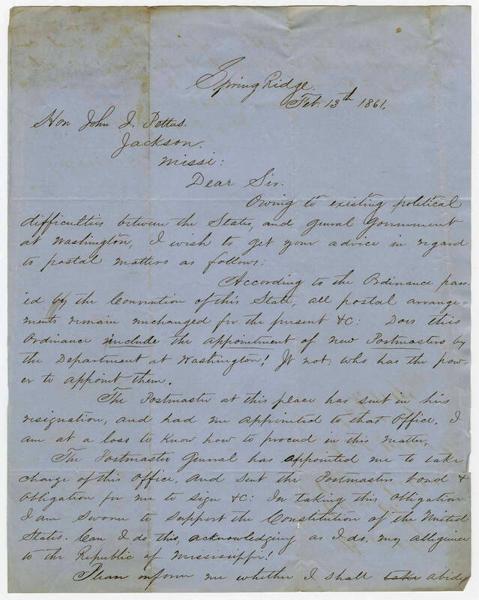 Spring Ridge.
Feb. 13th 1861.
Hon John J. Pettus.
Jackson.
Missi:
Dear Sir.
Owing to existing political
difficulties between the States, and general Government
at Washington, I wish to get your advice in regard
to postal matters as follows:
According to the Ordinance pass-
ed by the Convention of this State, all postal arrange-
ments remain unchanged for the present &C: Does this
Ordinance include the appointment of new Postmasters by
the Department at Washington! If not, who has the pow-
er to appoint them.
The Postmaster at this place has sent in his
resignation, and had me appointed to that Office. I
am at a loss to know how to proceed in this matter,
The Postmaster General has appointed me to take
charge of this Office, and sent the Postmasters bond &
Obligation for me to sign &C: In taking this Obligation
I am sworn to support the Constitution of the United
States. Can I do this, acknowledging as I do, my allegience
to the Republic of Mississippi!
Please inform me whether I shall abide